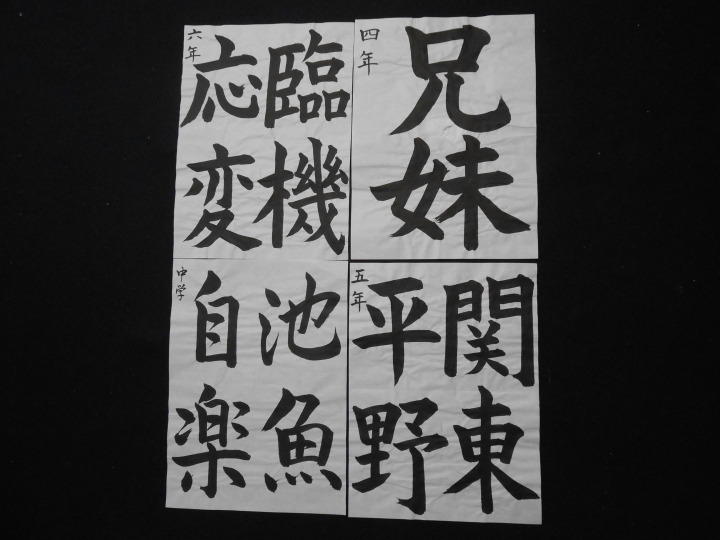 臨機
応変
六年
兄妹
四年
池魚
自楽
中学
関東
平野
五年